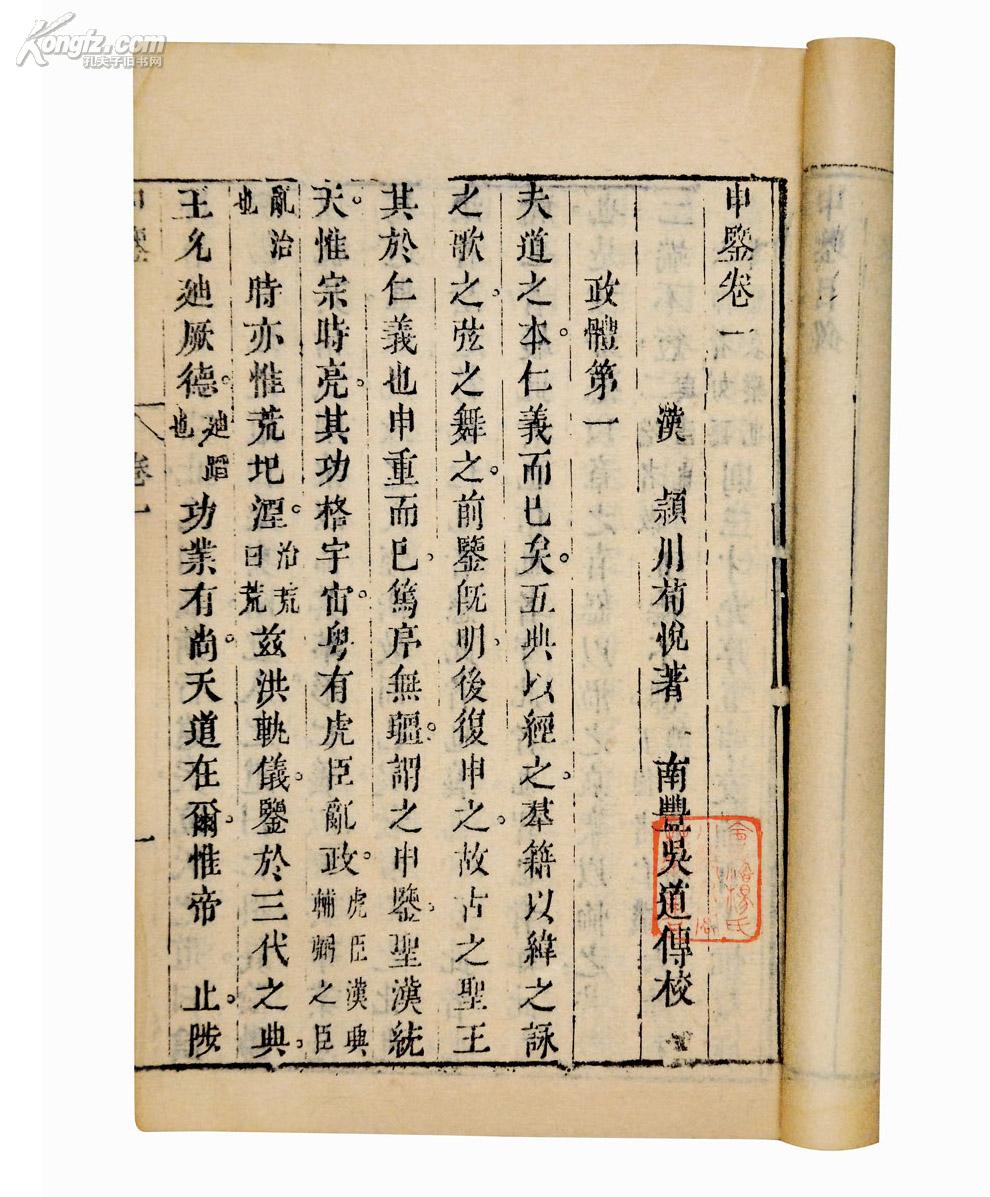 Kongfz.com
孔夫子旧书网
申鑒卷一
漢 潁川荀悅著 南豐吳道傳校
政體第一
夫道之本。仁義而已矣。五典以經之。羣籍以緯之詠
之歌之。弦之舞之。前鑒既明。後復申之。故古之聖王
其於仁義也申重而已。篤序無疆。謂之申鑒。聖漢統
天。惟宗時亮。其功格宇宙。粤有虎臣亂政。虎臣漢典輔弼之臣
亂治也時亦惟荒圯湮。治荒曰荒茲洪軌儀。鑒於三代之典。
王允迪厥德。迪蹈也功業有尚。天道在爾。惟帝 止。陟
卷一
一
楊氏